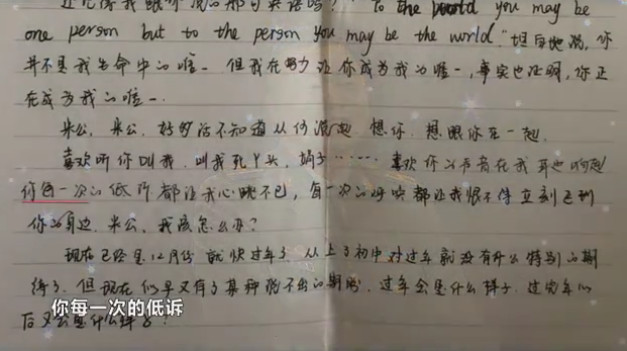 还记得我跟你说的那句英语吗？" To the world you may be
one person but to the person you may be the world."坦白地说，你
并不是我生命中的唯一 但我在努力让你成为我的唯一，事实也证明，你正
在成为我的唯一.
米公，米公，好多话不知道从何说起. 想你，想跟你在一起.
喜欢听你叫我，叫我死丫头，……喜欢你的声音在我耳边响起
你每一次的低诉都让我心跳不已，每一次的呼唤都让我恨不得立刻飞到
你的身边. 米公，我该怎么办？
现在已经是12月份 就快过年了 从上了初中对过年就没有什么特别的期
待了. 但现在似乎又有了某种说不出的期盼. 过年会是什么样子. 过完年以
后又会是什么样子？
你每一次的低诉